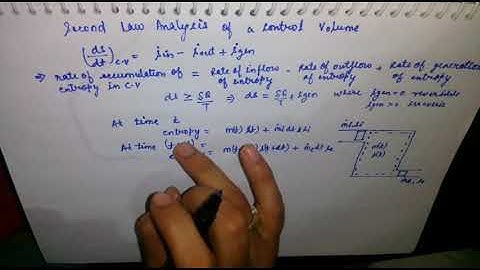 Second Law Analysis of a Control Volume
(ds/dt)C.V = ṡin - ṡout + ṡgen
⇒ rate of accumulation of entropy in C.V = Rate of inflow of entropy - Rate of outflow of entropy + Rate of generation of entropy
ds ≥ δQ/T ⇒ ds = δQ/T + sgen where sgen=0 reversible
sgen>0 irrever
At time t
entropy = m(t) s(t) + ṁi dt si
At time
m(t+dt) + ṁe dt se
ṁi, si
m(t)
s(t)
ṁe, se